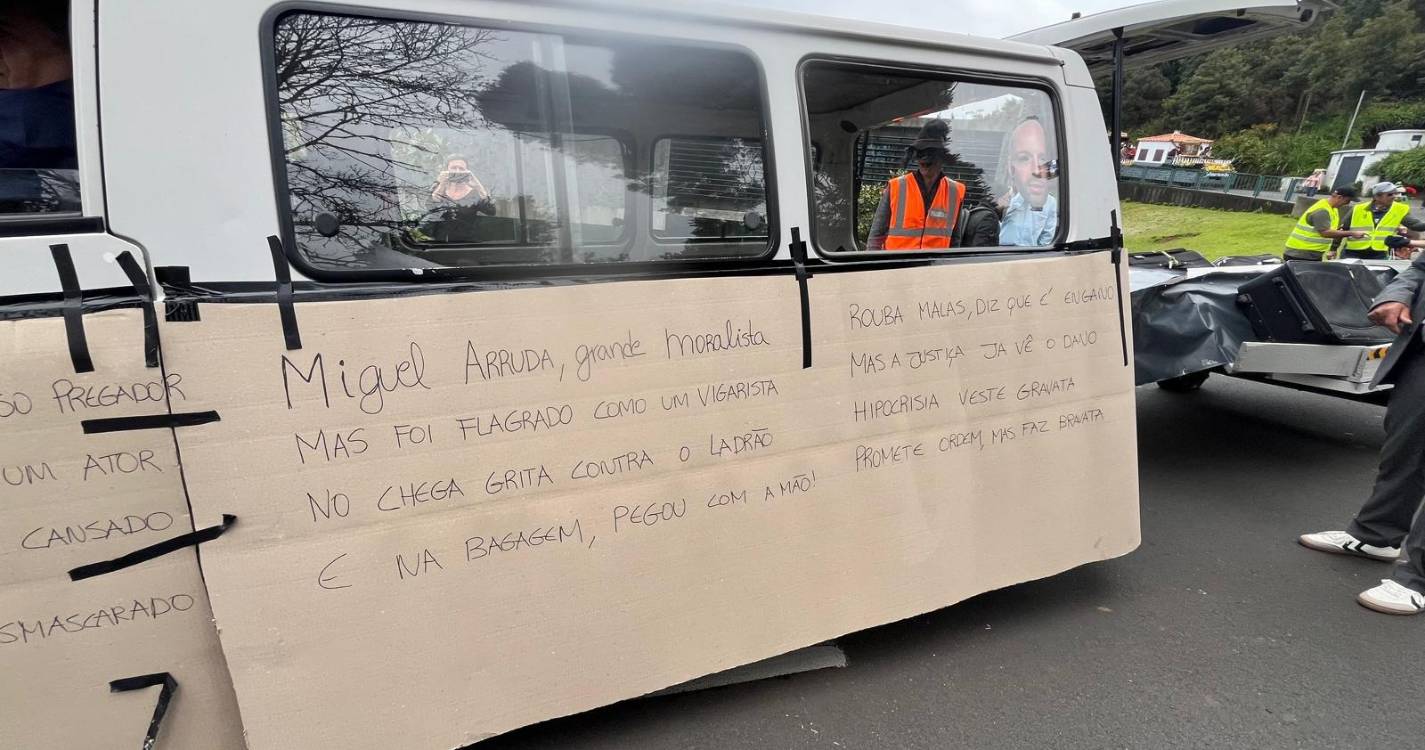 SO PREGADOR
UM ATOR
CANSADO
SMASCARADO
Miguel ARRUDA, grande moralista
MAS FOI FLAGRADO COMO UM VIGARISTA
NO CHEGA GRITA CONTRA O LADRÃO
E NA BAGAGEM, PEGOU COM A MÃO!
ROUBA MALAS, DIZ QUE É ENGANO
MAS A JUSTIÇA JA VÊ O DANO
HIPOCRISIA VESTE GRAVATA
PROMETE ORDEM, MAS FAZ BRAVATA